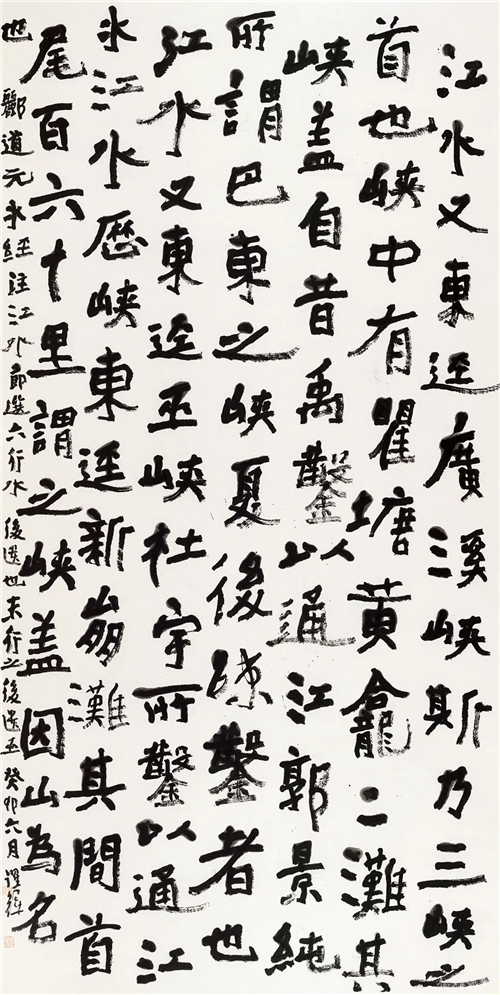 江水又東逕廣溪峽斯乃三峽之
首也峽中有瞿塘黃龕二灘其
峽蓋自昔禹鑿以通江郭景純
所謂巴東之峽夏後疏鑿者也
江水又東逕巫峽杜宇所鑿以通江
水江水歷峽東逕新崩灘其間首
尾百六十里謂之峽蓋因山為名
也 酈道元水經注江水節選六行水後遺也末行之後遺巫 癸卯六月